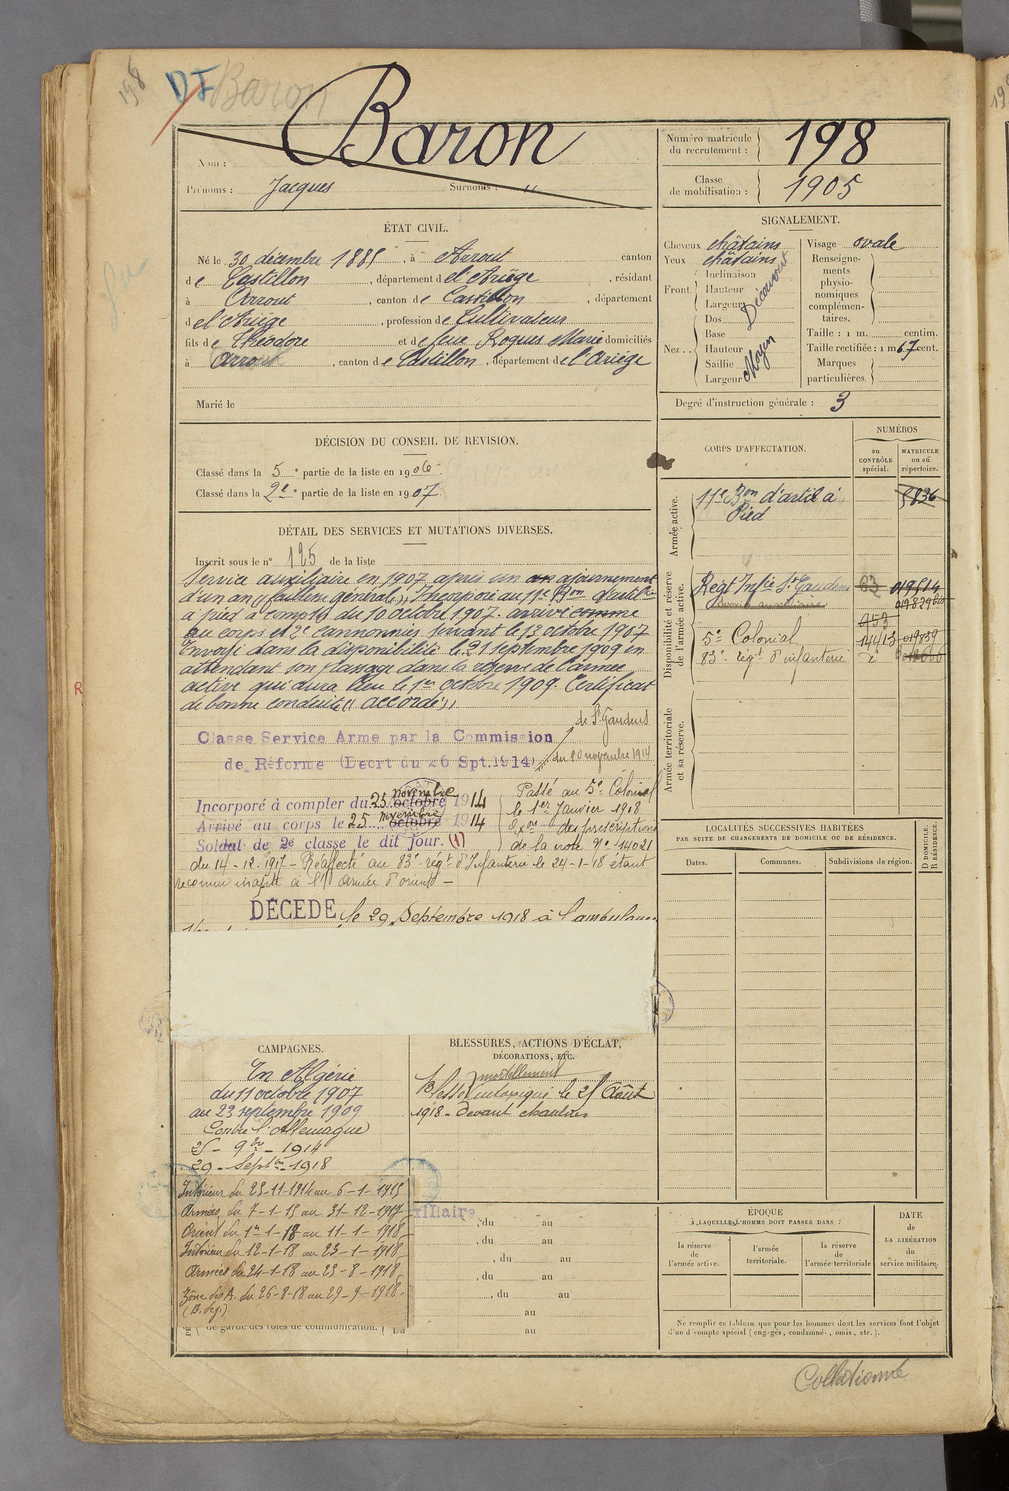 198
DJ Baron
Baron
Nom :
Prénoms : Jacques Surnoms : "
Numéro matricule
du recrutement : 198
Classe
de mobilisation : 1905
ÉTAT CIVIL.
Né le 30 décembre 1885, à Arrout canton
de Castillon, département de l'Ariège, résidant
à Arrout, canton de Castillon, département
de l'Ariège, profession de Cultivateur
fils de Théodore et de feue Roques Marie domiciliés
à Arrout, canton de Castillon, département de l'Ariège
Marié le
SIGNALEMENT.
Cheveux châtains
Yeux châtains
Front. Inclinaison
Hauteur
Largeur
Découvert
Nez.. Dos
Base
Hauteur
Saillie
Largeur
Moyen
Visage ovale
Renseigne-
ments
physio-
nomiques
complémen-
taires.
Taille : 1 m. centim.
Taille rectifiée : 1 m 67 cent.
Marques
particulières.
Degré d'instruction générale : 3
DÉCISION DU CONSEIL DE REVISION.
Classé dans la 5e partie de la liste en 1906
Classé dans la 2e partie de la liste en 1907
DÉTAIL DES SERVICES ET MUTATIONS DIVERSES.
Inscrit sous le n° 125 de la liste
Service auxiliaire en 1907 après un an ajournement
d'un an "faiblesse générale". Incorporé au 11e Bon d'artillie
à pied à compter du 10 octobre 1907. arrivé comme
au corps et 2e cannonnier servant le 13 octobre 1907
Envoyé dans la disponibilité le 21 septembre 1909 en
attendant son passage dans la réserve de l'armée
active qui aura lieu le 1er octobre 1909. Certificat
de bonne conduite "accordé"
Classe Service Arme par la Commission de St Gaudens
de Réforme (Decrt du 26 Spt.1914) du 20 novembre 1914
Incorporé à compter du 25 octobre novembre 1914
Arrivé au corps le 25 octobre novembre 1914
Soldat de 2e classe le dit jour. (1)
Passé au 5e Colonial
le 1er Janvier 1918
des prescriptions
de la note N° 14021
du 14-12-1917 - Réaffecté au 83e régt d'Infanterie le 24-1-18 étant
reconnu inapte à l'armée d'orient -
DÉCÉDÉ le 29 Septembre 1918 à l'ambulance
CORPS D'AFFECTATION.
NUMÉROS
au
CONTRÔLE
spécial.
MATRICULE
ou au
répertoire.
Armée active.
11e Bon d'artie à
Pied
5836
Disponibilité et réserve
de l'armée active.
Regt Infie St Gaudens 63 019514
service auxiliaire
953
5e Colonial 14413
83e régt d'infanterie
Armée territoriale
et sa réserve.
LOCALITÉS SUCCESSIVES HABITÉES
PAR SUITE DE CHANGEMENTS DE DOMICILE OU DE RÉSIDENCE.
Dates.
Communes.
Subdivisions de région.
D DOMICILE.
R RÉSIDENCE.
CAMPAGNES.
En Algérie
du 11 octobre 1907
au 23 septembre 1909
Contre l'Allemagne
25 - 9bre - 1914
29 - Septbre 1918
Intérieur du 25-11-1914 au 6-1-1915
Armées du 7-1-15 au 31-12-1917
Orient du 1er-1-18 au 11-1-1918
Intérieur du 12-1-18 au 23-1-1918
Armées du 24-1-18 au 25-8-1918
Zône des A. du 26-8-18 au 29-9-1918
BLESSURES, ACTIONS D'ÉCLAT,
DÉCORATIONS, ETC.
mortellement
Blessé le 25 Août
1918 - devant chaulnes
xiliaire
, du au
, du au
, du au
, du au
, du au
au
de garde des voies de communication. (Du au
ÉPOQUE
À LAQUELLE L'HOMME DOIT PASSER DANS :
la réserve
de
l'armée active.
l'armée
territoriale.
la réserve
de
l'armée territoriale
DATE
de
LA LIBÉRATION
du
service militaire.
Ne remplir ce tableau que pour les hommes dont les services font l'objet
d'un décompte spécial (engagés, condamnés, omis, etc.).
Collationné